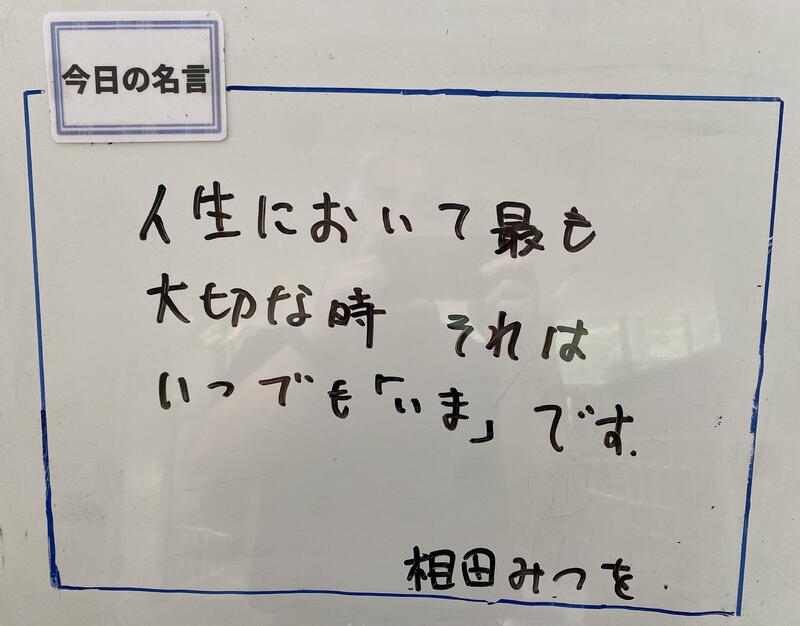 今日の名言
人生において最も
大切な時 それは
いつでも「いま」です.
相田みつを.